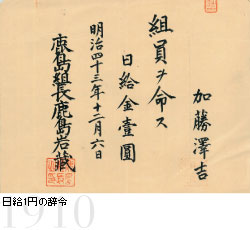 加藤澤吉
組員ヲ命ス
日給金壹圓
明治四十三年十二月六日
鹿島組長鹿島岩藏
日給1円の辞令
1910